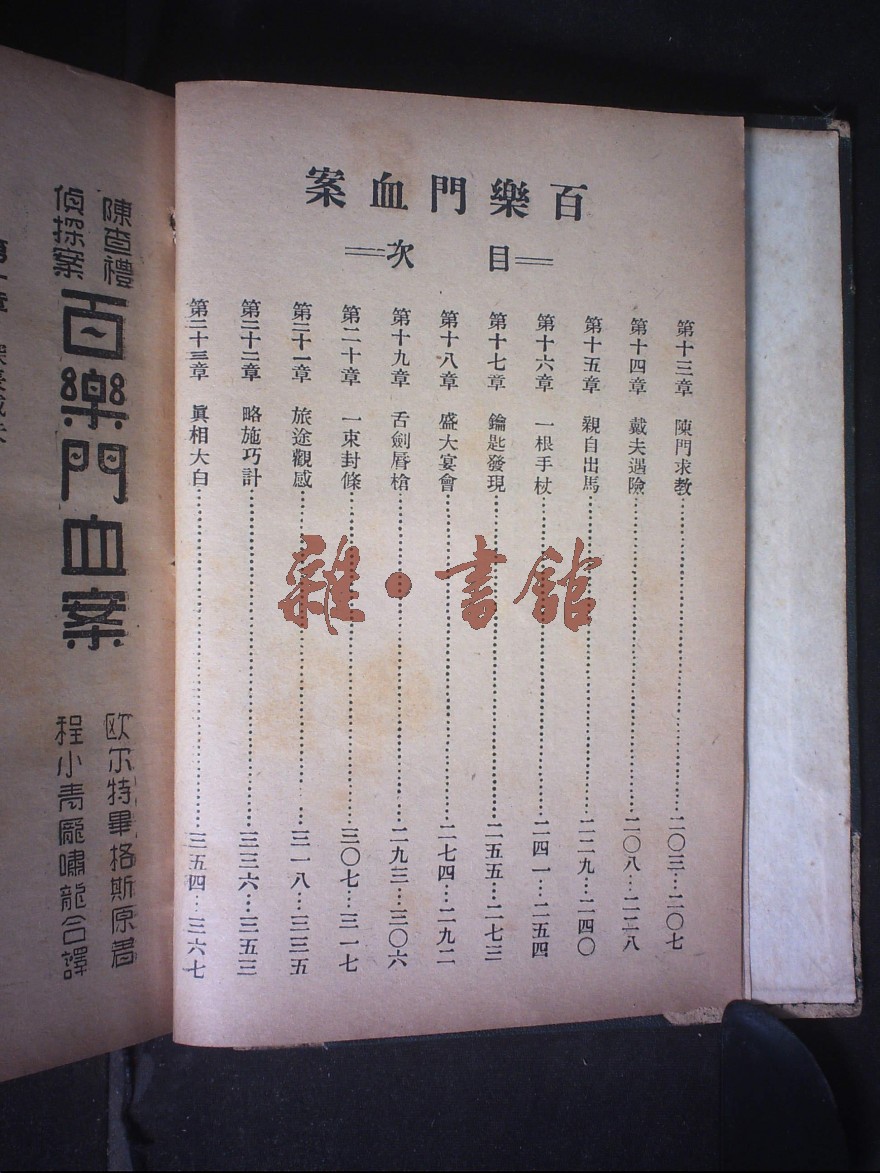 百樂門血案
＝目　次＝
第十三章　陳門求教……二〇三…二〇七
第十四章　戴夫遇險……二〇八…二二八
第十五章　親自出馬……二二九…二四〇
第十六章　一根手杖……二四一…二五四
第十七章　鑰匙發現……二五五…二七三
第十八章　盛大宴會……二七四…二九二
第十九章　舌劍唇槍……二九三…三〇六
第二十章　一束封條……三〇七…三一七
第二十一章　旅途觀感……三一八…三三五
第二十二章　略施巧計……三三六…三五三
第二十三章　眞相大白……三五四…三六七
雜・書館
陳查禮
偵探案
百樂門血案
歐尔特畢格斯原著
程小青龐嘯龍合譯
第一章